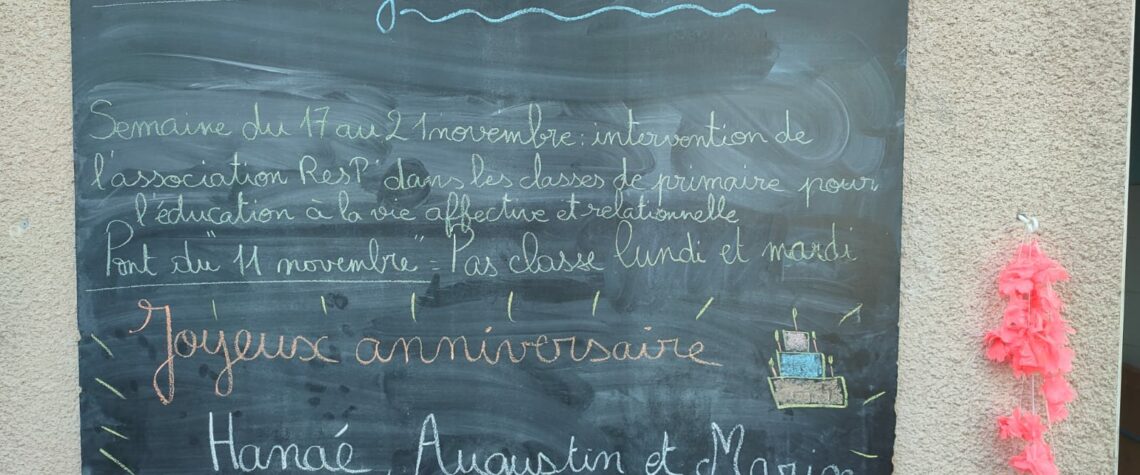 Semaine du 17 au 21 novembre : intervention de
l'association ResP' dans les classes de primaire pour
l'éducation à la vie affective et relationnelle
Pont du "11 novembre" = Pas classe lundi et mardi
Joyeux anniversaire
Hanaé, Augustin et